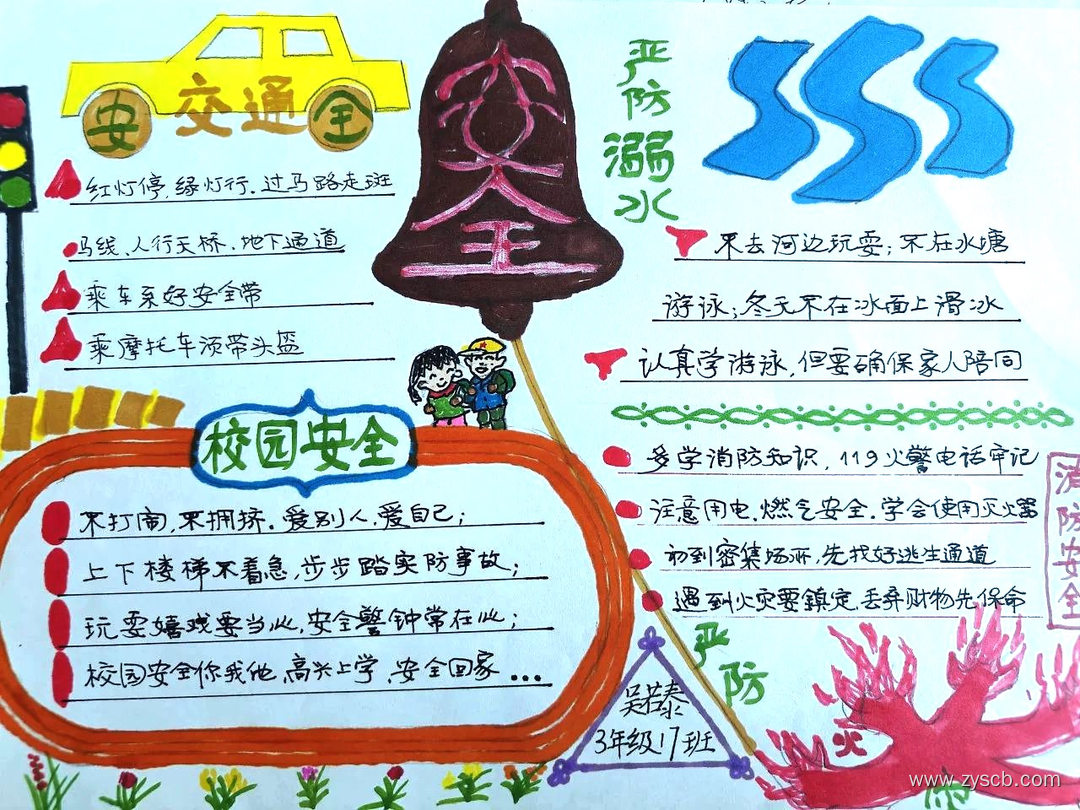 交通
安 全
安全
红灯停,绿灯行.过马路走斑
马线、人行天桥.地下通道
乘车系好安全带
乘摩托车须带头盔
校园安全
不打闹,不拥挤.爱别人,爱自己;
上下楼梯不着急,步步踏实防事故;
玩耍嬉戏要当心,安全警钟常在心;
校园安全你我他,高兴上学,安全回家...
严防溺水
不去河边玩耍;不在水塘
游泳;冬天不在冰面上滑冰
认真学游泳,但要确保家人陪同
多学消防知识,119火警电话牢记
注意用电.燃气安全.学会使用灭火器
初到密集场所,先找好逃生通道
遇到火灾要鎮定,丢弃财物先保命
消防安全
严防
火
吴若泰
3年级17班
www.zyscb.com